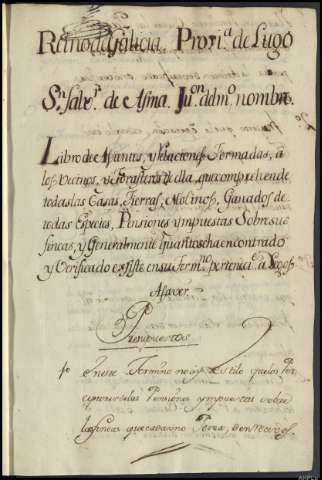 Reino de Galicia, Provi.ª de Lugo
S.n Salv.r de Asma. Ju.on del m.o nombre.
Libro de Asientos, y Relaciones Formadas, a
los Vecinos, y Forasteros de ella, que comprehende
todas las Casas, Tierras, Molinos, Ganados de
todas Especies, Pensiones y mpuestas Sobre sus
fincas, y Generalmente quanto se ha encontrado
y Verificado existe en su term.no perteneci.te a Legos
Asaver
Presupuestos
1º En este Termino no ay Estilo
Pensiones ympuestas sobre
las fincas que cada uno